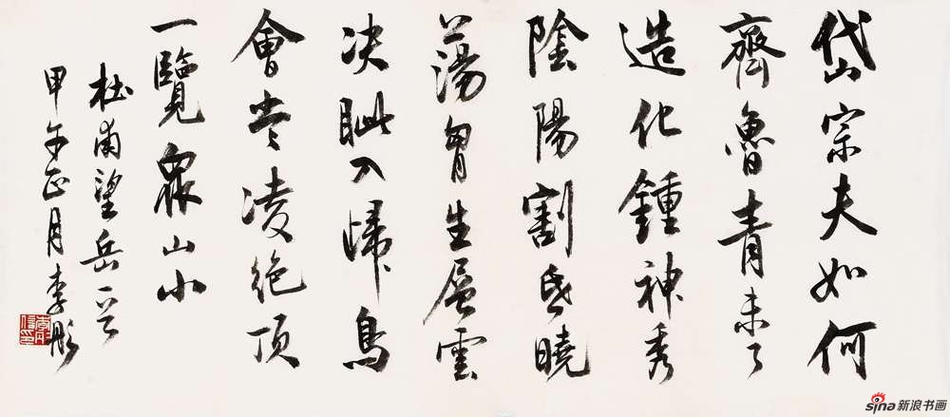 岱宗夫如何
齊魯青未了
造化鍾神秀
陰陽割昏曉
蕩胷生層雲
决眦入歸鳥
會當凌絕頂
一覽眾山小
杜甫望岳一首
甲午正月李彤
sina新浪书画